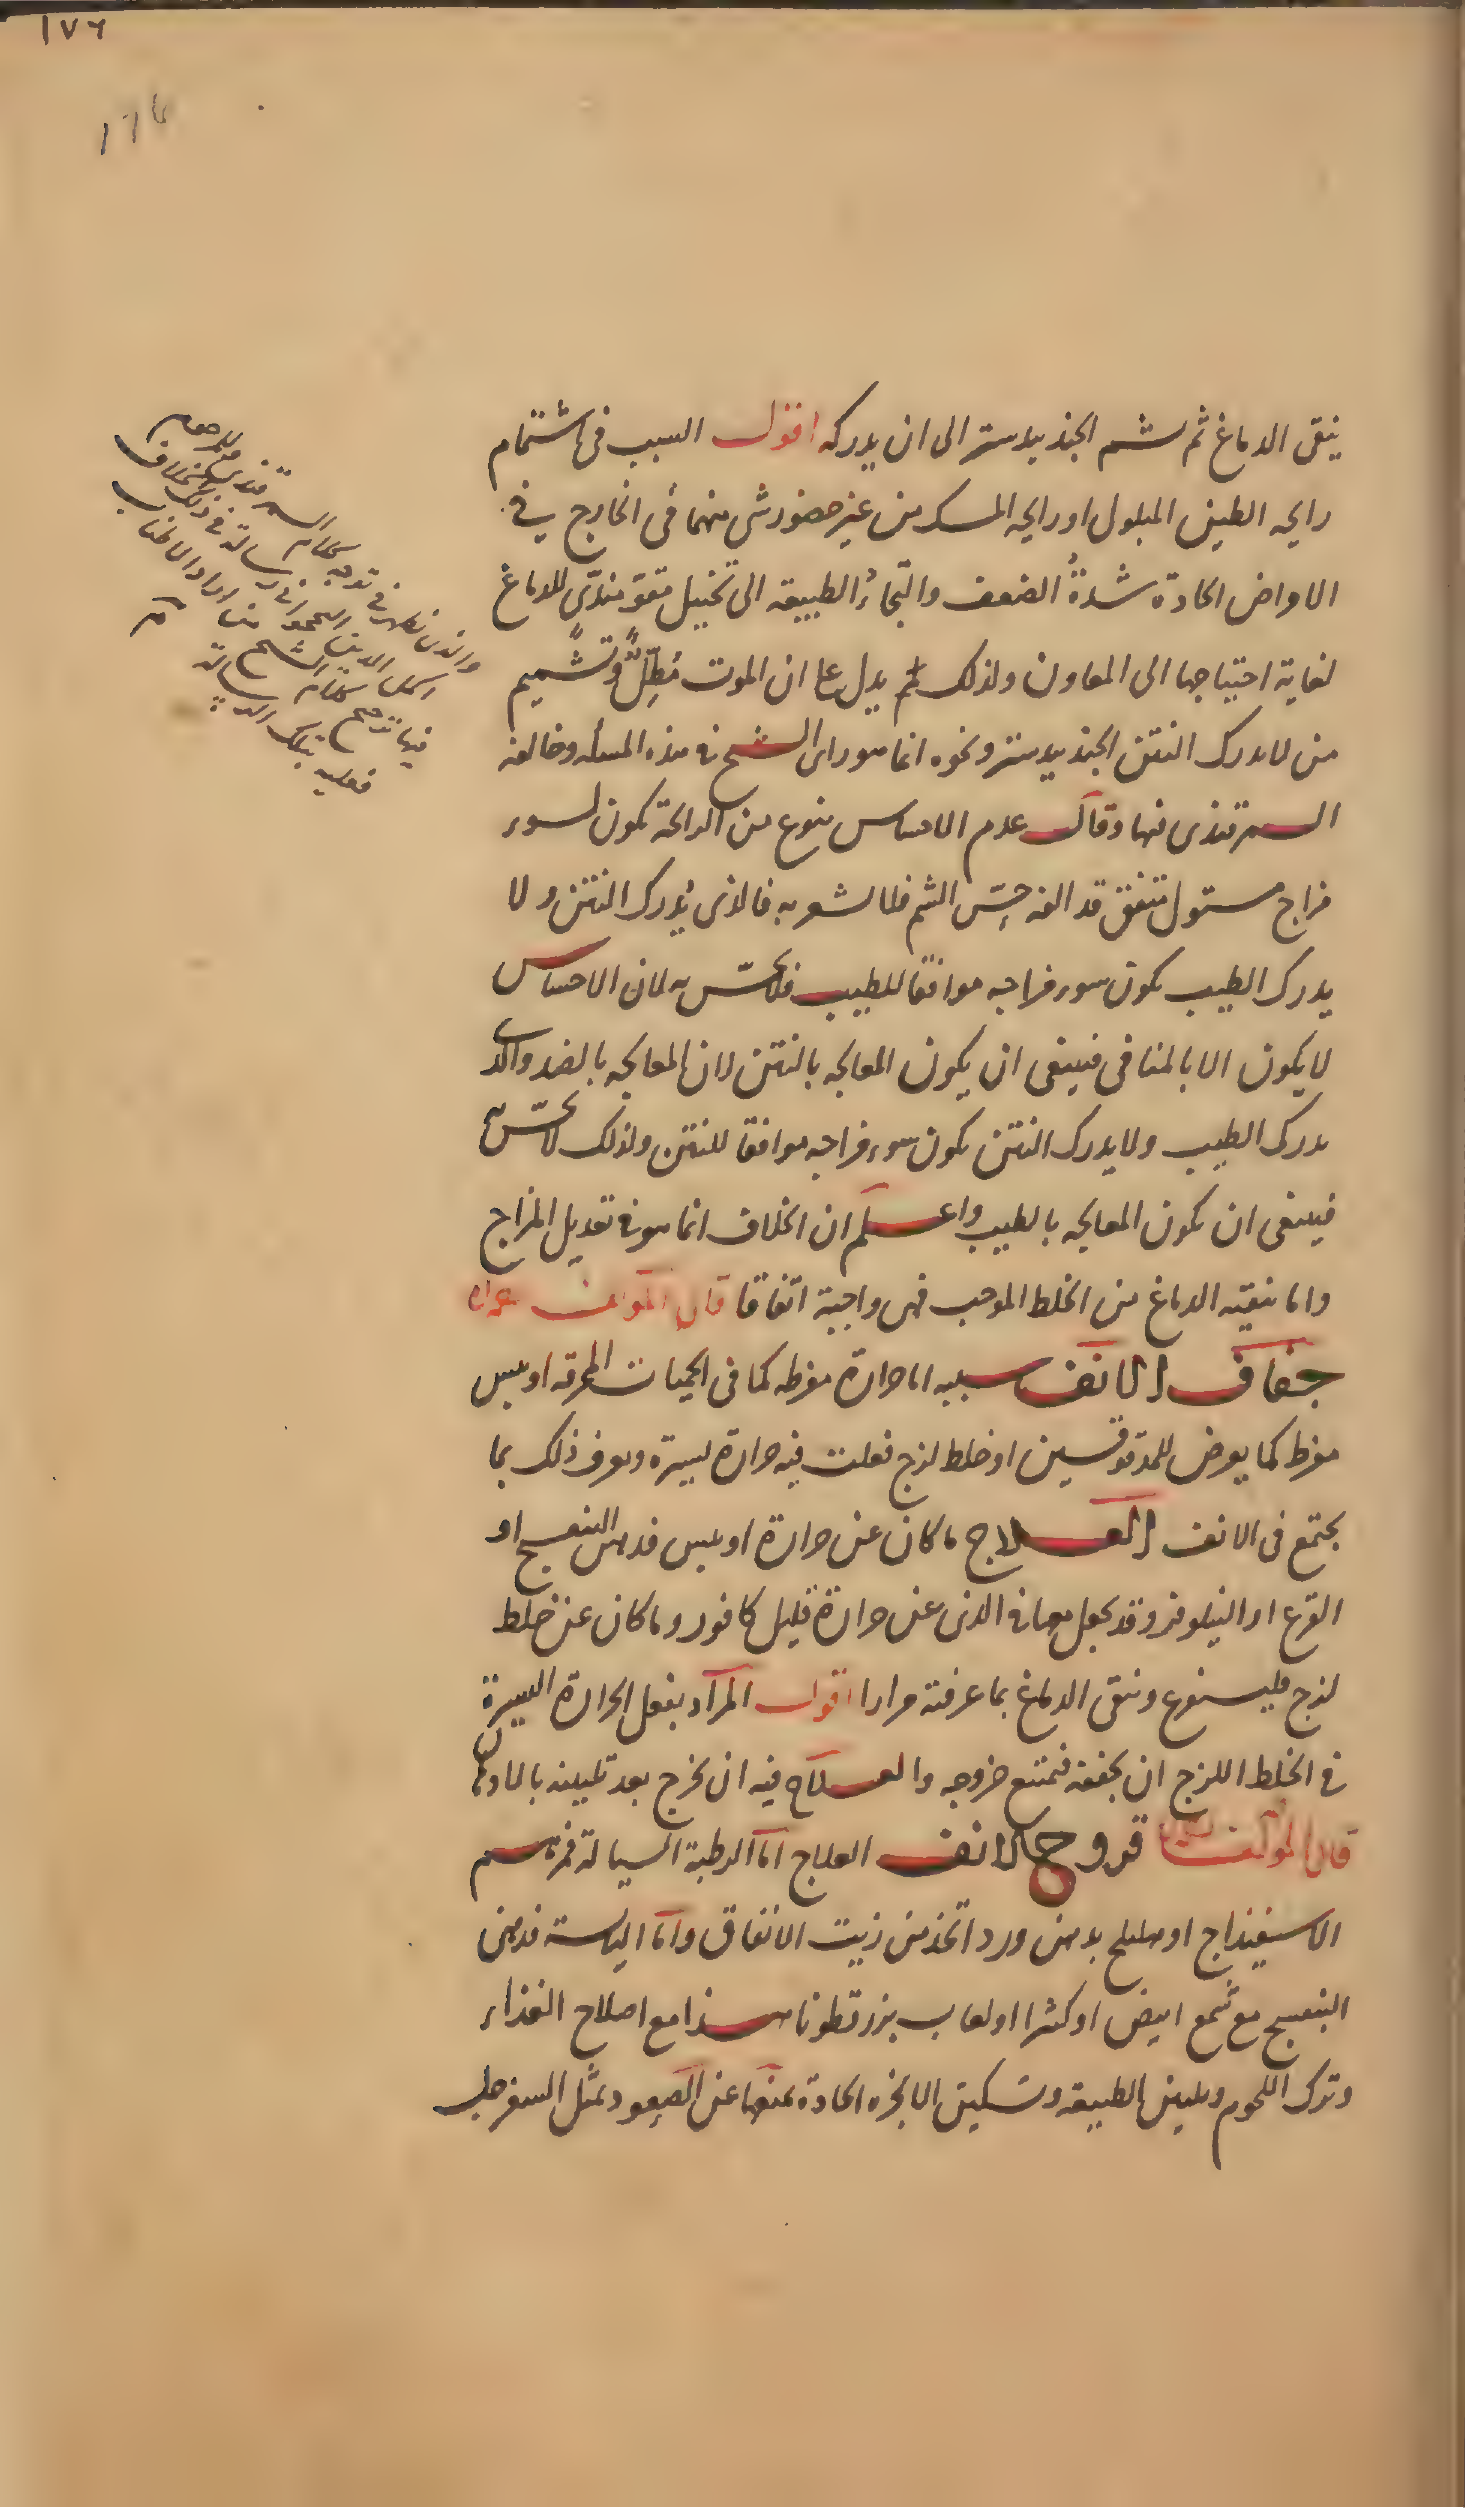 ١٧٦
ينقى الدماغ ثم شم الجندبيدستر الى ان يدركه اقول السبب فى اشتمام
رايحه الطين المبلول او رايحه المسك من غير حضور شى منهما فى الخارج فى
الامراض الحادة شدة الضعف والتجاءُ الطبيعه الى تخييل مقوّ مندّى للدماغ
لغاية احتياجها الى المعاون ولذلك لم يدل على ان الموت مُطِلٌّ وتشميم
من لا يدرك النتن الجندبيدستر ونحوه انما هو راى الشيخ فى هذه المسأله وخالفه
السمرقندى فيها وقال عدم الاحساس بنوع من الرائحة يكون لسوء
مزاج مستول متفق قد الفه حِسّ الشم فلا يشعر به فالذى يُدرك النتن ولا
يدرك الطيب يكون سوء مزاجه موافقا للطيب فلا يحسّ به لان الاحساس
لا يكون الا بالمنافى فينبغى ان يكون المعالجه بالنتن لان المعالجه بالضد والذى
يدرك الطيب ولا يدرك النتن يكون سوء مزاجه موافقا للنتن ولذلك لا يحسّ به
فينبغى ان يكون المعالجه بالطيب واعلم ان الخلاف انما هو فى تعديل المزاج
واما تنقيه الدماغ من الخلط الموجب فهى واجبة اتفاقا قال المؤلف
جفاف الانف سببه اما حرارة مفرطه كما فى الحميات المحرقه او يبس
مفرط كما يعرض للمدقوقين او خلط لزج فعلت فيه حرارة يسيرة ويعرف ذلك بما
يجتمع فى الانف العلاج ما كان عن حرارة او يبس فدهن البنفسج او
القرع او النيلوفر وقد يجعل معها فى الذى عن حرارة قليل كافور وما كان عن خلط
لزج فليستفرغ وينقى الدماغ بما عرفته مرارا اقول المراد بفعل الحرارة اليسيرة
فى الخلط اللزج ان يجففه فيمتنع خروجه والعلاج فيه ان يخرج بعد تليينه بالادهان
قال المؤلف قروح الانف العلاج اما الرطبة السيالة فمرهم
الاسفيذاج او هليلج بدهن ورد اتخذ من زيت الانفاق واما اليابسة فدهن
البنفسج مع شمع ابيض او كثيرا او لعاب بزرقطونا هذا مع اصلاح الغذاء
وترك اللحوم وتليين الطبيعه وتسكين الابخره الحادة بمنعها عن الصعود بمثل السفرجل